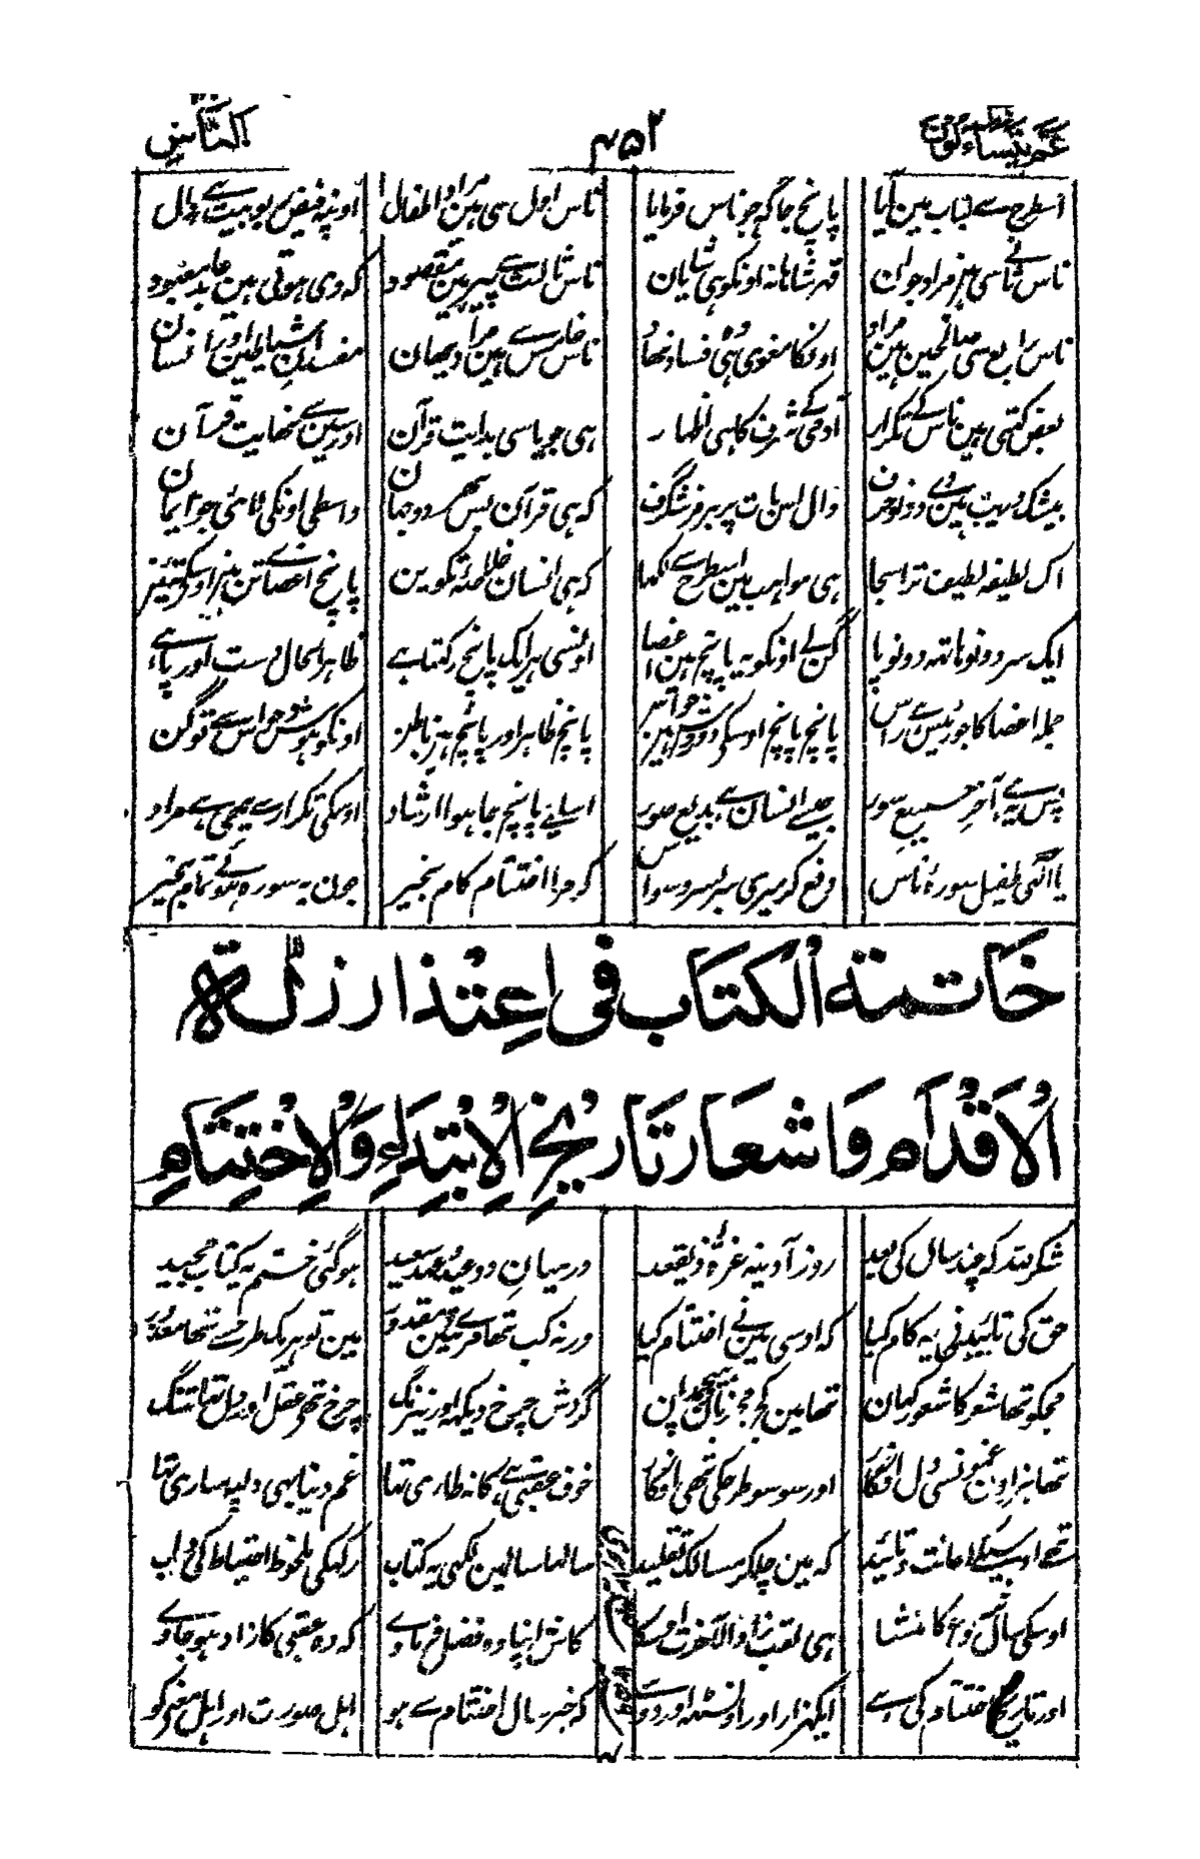 عم یتساءلون ۴۵۲ الناس
اسطرح سے لباب مین آیا پانچ جاگہ جو ناس فرمایا ناس اول سی ہین مراد اطفال اونپہ فیض ربوبیت ہے دال
ناس ثانی سی ہین مراد جوان قہر شاہانہ اونکو ہی شایان ناس ثالث سے پیر ہین مقصود کہ وی ہوتی ہین عابد معبود
ناس رابع سی صالحین ہین مراد اونکا مغوی ہی فساد نہاد ناس خامس سے ہین مراد یہان مفسدان شیاطین اور انسان
بعض کہتی ہین ناس کے تکرار آدمی کے شرف کا ہی اظہار ہی جو یا سی بدایت قرآن اور سین سے نہایت قرآن
بیشک بہت ہین وے دونو حرف دال اس بات پر برمز شگرف کہ ہی قرآن بس بہر دو جہان واسطی اونکی لائی جو ایمان
اک لطیفہ لطیف تر اسجا ہی مواہب مین اسطرح سے لکہا کہ ہی انسان خلاصۂ تکوین پانچ اعضا تن مین اوسکے
ایک سر دونو ہاتہ دونو پا گن لے اونکو یہ پانچ ہین اعضا اونسی ہر ایک پانچ رکہتا ہے ظاہر الحال دست اور پا ہے
جملہ اعضا کا جو رئیس ہے راس پانچ پانچ اوسکی دو روش ہین حواس پانچ ظاہر اور پانچ ہین باطن اونکو ہوش حواس سے تو گن
پس ہے یہ آخر جمیع سور جیسے انسان ہے بدیع صور اسلیے پانچ جا ہوا ارشاد اوسکی تکرار سے یہی ہے مراد
یا الہی طفیل سورۂ ناس دفع کر میری سر بسر وسواس کر مرا اختتام کام بخیر جون یہ سورہ ہوئے تمام بخیر
خاتمۃ الکتاب فی اعتذار زلۃ
الاقدام واشعار تاریخ الابتداء والاختتام
شکر للہ کہ چند سال کی بعد روز آدینہ غرۂ ذیقعد درمیان دو عید عہد سعید ہو گئی ختم یہ کتاب مجید
حق کی تائید نی یہ کام کیا کہ اوسی مین نے اختتام کیا ورنہ کب تھا مرے تئین مقدور مین تو ہر یک طرح سے تہا معذور
مجکو تہا شعر کا شعور کہان تہا مین کج مج زبان ہیچمدان گردش چرخ دیکہہ اور نیرنگ چرخ تھی عقل اور دل تہا تنگ
تہا ہزارون غمونسی دل افگار اور سو سو طرحکی تہی افکار خوف عقبے سے گانہ طاری تہا غم دنیا بہی دلپہ ساری تہا
تہے اوسیکے اعانت و تائید کہ مین چلکر مسالک تقلید سالہا سال مین لکہی یہ کتاب رکہکی ملحوظ احتیاط کی باب
اوسکی سال شروع کا منشا ہی لقب زاد الآخرت اوسکا کاش اپنا وہ فضل فرماوے کہ وہ عقبی کا زاد ہو جاوے
اور تاریخ اختتام کی ہے ایکہزار اور دو سے کہ خبر سال اختتام سے ہو اہل صورت اور اہل معنی کو